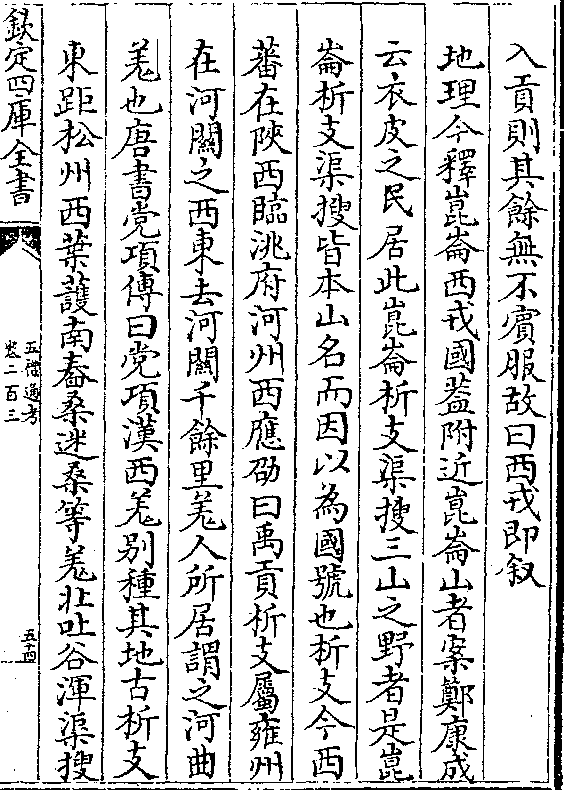 入貢則其餘無不賔服故曰西戎即叙
地理今釋崑崙西戎國葢附近崑崙山者案鄭康成
云衣皮之民居此崑崙析支渠搜三山之野者是崑
崙析支渠搜皆本山名而因以為國號也析支今西
蕃在陜西臨洮府河州西應劭曰禹貢析支屬雍州
在河關之西東去河關千餘里羗人所居謂之河曲
羗也唐書党項傳曰党項漢西羗别種其地古析支
東距松州西葉䕶南舂桑迷桑等羗北吐谷渾渠搜
欽定四庫全書
五禮通考
卷二百三
五十四